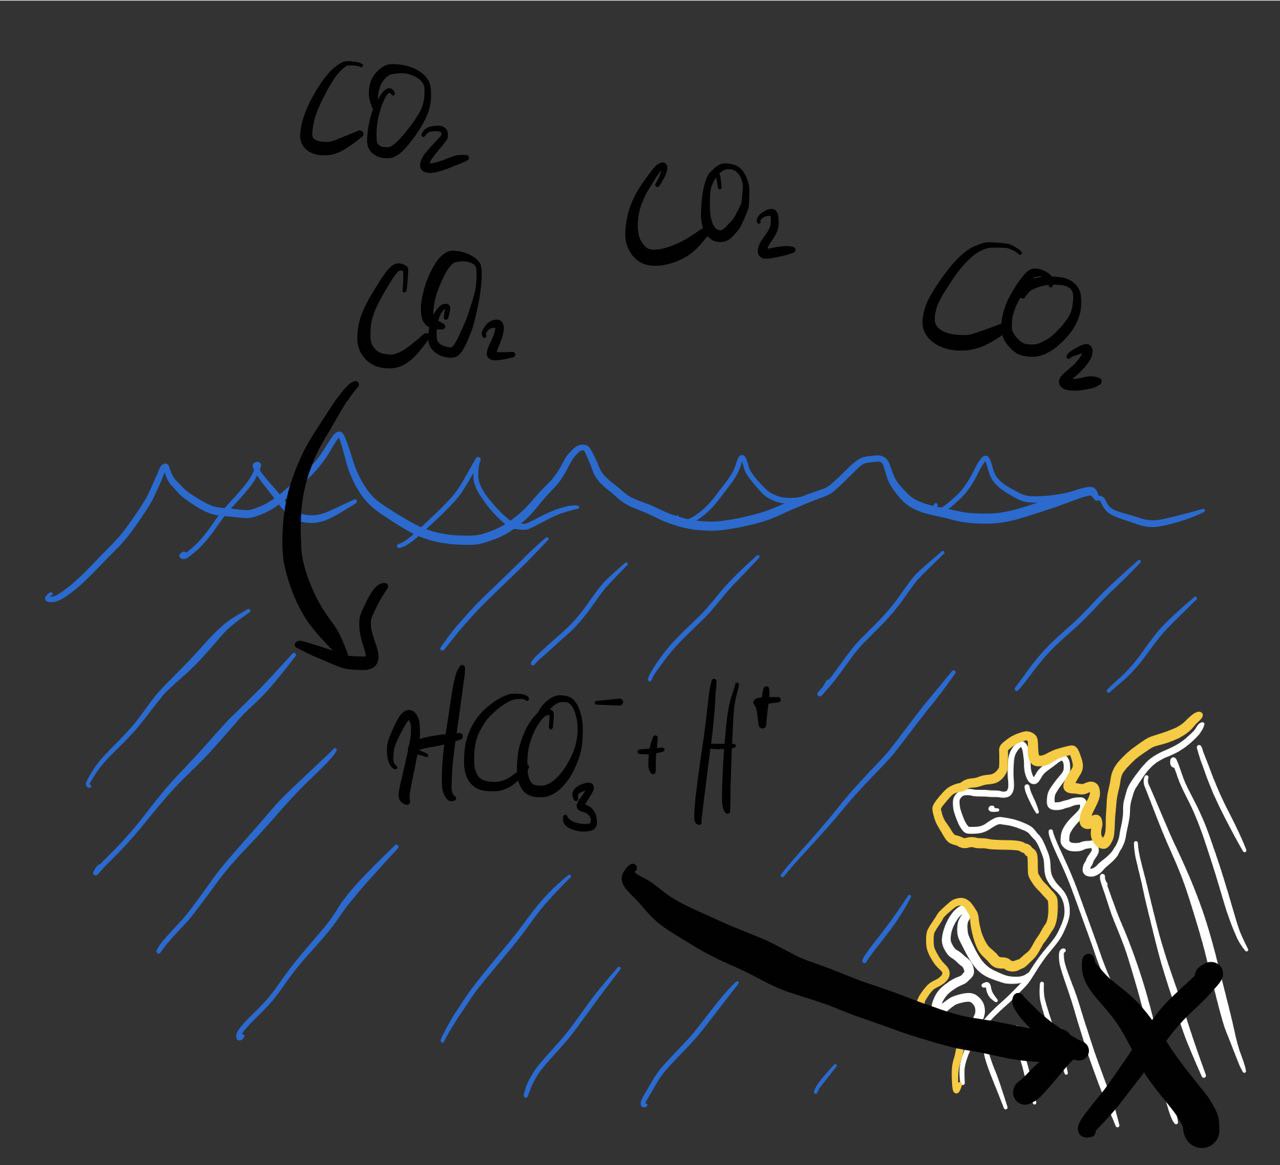 CO₂
CO₂
CO₂
CO₂
HCO₃⁻ + H⁺